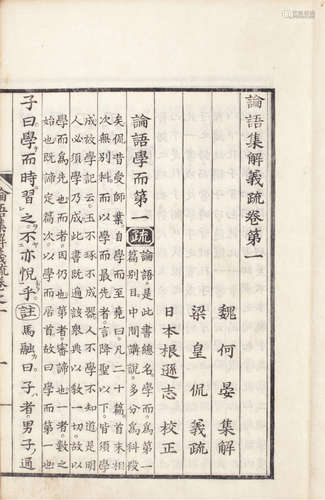 論語集解義疏卷第一
魏何晏集解
梁皇侃義疏
日本根遜志校正
論語學而第一疏論語是此書總名學而為第一
篇別目中間講說多分為科段
矣侃昔受師業自學而至堯曰凡二十篇首末相
次無別科而以學而最先者言降聖以下皆須學
成故學記云玉不琢不成器人不學不知道是明
人必須學乃成此書既遍該衆典以教一切故以
學而為先也而者因仍也第者審諦也一者數之
始也既諦定篇次以學而居首故曰學而第一也
子曰學而時習之不亦悅乎註馬融曰子者男子通
論語集解義疏卷之一 一